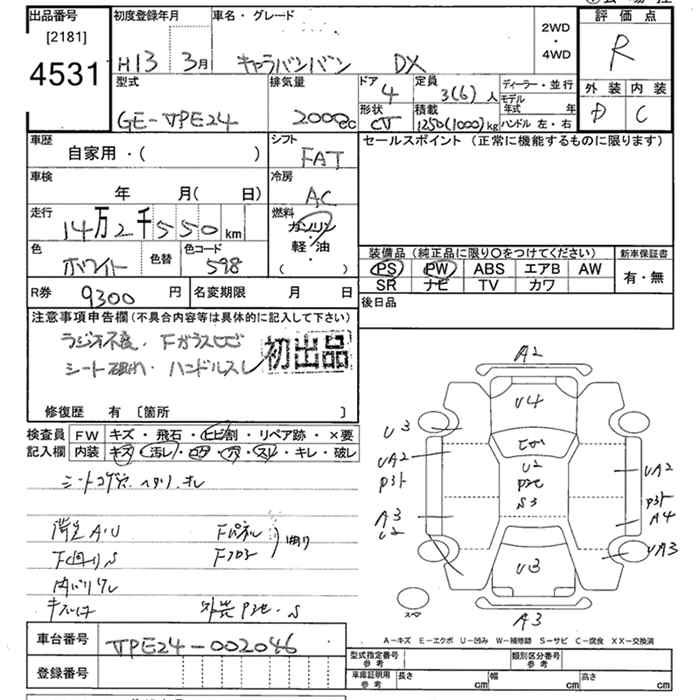 出品番号 初度登録年月 車名・グレード 2WD・4WD 評価点
[2181]
4531
H13 3月 キャラバンバン DX R
型式 排気量 ドア 定員 ディーラー・並行 外装 内装
4 3(6)人 モデル年式 年
GE-VPE24 2000cc 形状 積載 ハンドル 左・右 D C
CV 1250(1000)kg
車歴 シフト セールスポイント (正常に機能するものに限ります)
自家用・( ) FAT
車検 冷房
年 月(日) AC
走行 燃料
14万2千550km ガソリン
軽・油
( )
色 色替 色コード 装備品 (純正品に限り○をつけてください) 新車保証書
ホワイト 598 PS PW ABS エアB AW 有・無
SR ナビ TV カワ
R券 9300円 名変期限 月 日 後日品
注意事項申告欄(不具合内容等は具体的に記入して下さい)
ラジオ不良. Fガラスヒビ
シート破れ. ハンドルスレ 初出品
修復歴 有 〔箇所 〕
検査員 FW キズ・飛石・ヒビ割・リペア跡・×要
記入欄 内装 キズ・汚レ・コゲ・穴・スレ・キレ・破レ
シートコゲ穴. ヘタリ. オレ
Fパネル
Fフロア
下回りS
A2
U4
U3
U2
UA2
P2C
S3
UA2
A3
U2
A4
UA3
U3
A3
A-キズ E-エクボ U-凹み W-補修跡 S-サビ C-腐食 XX-交換済
車台番号 VPE24-002046
登録番号
型式指定番号 参考 類別区分番号 参考
車庫証明用 参考 長さ cm 幅 cm 高さ cm